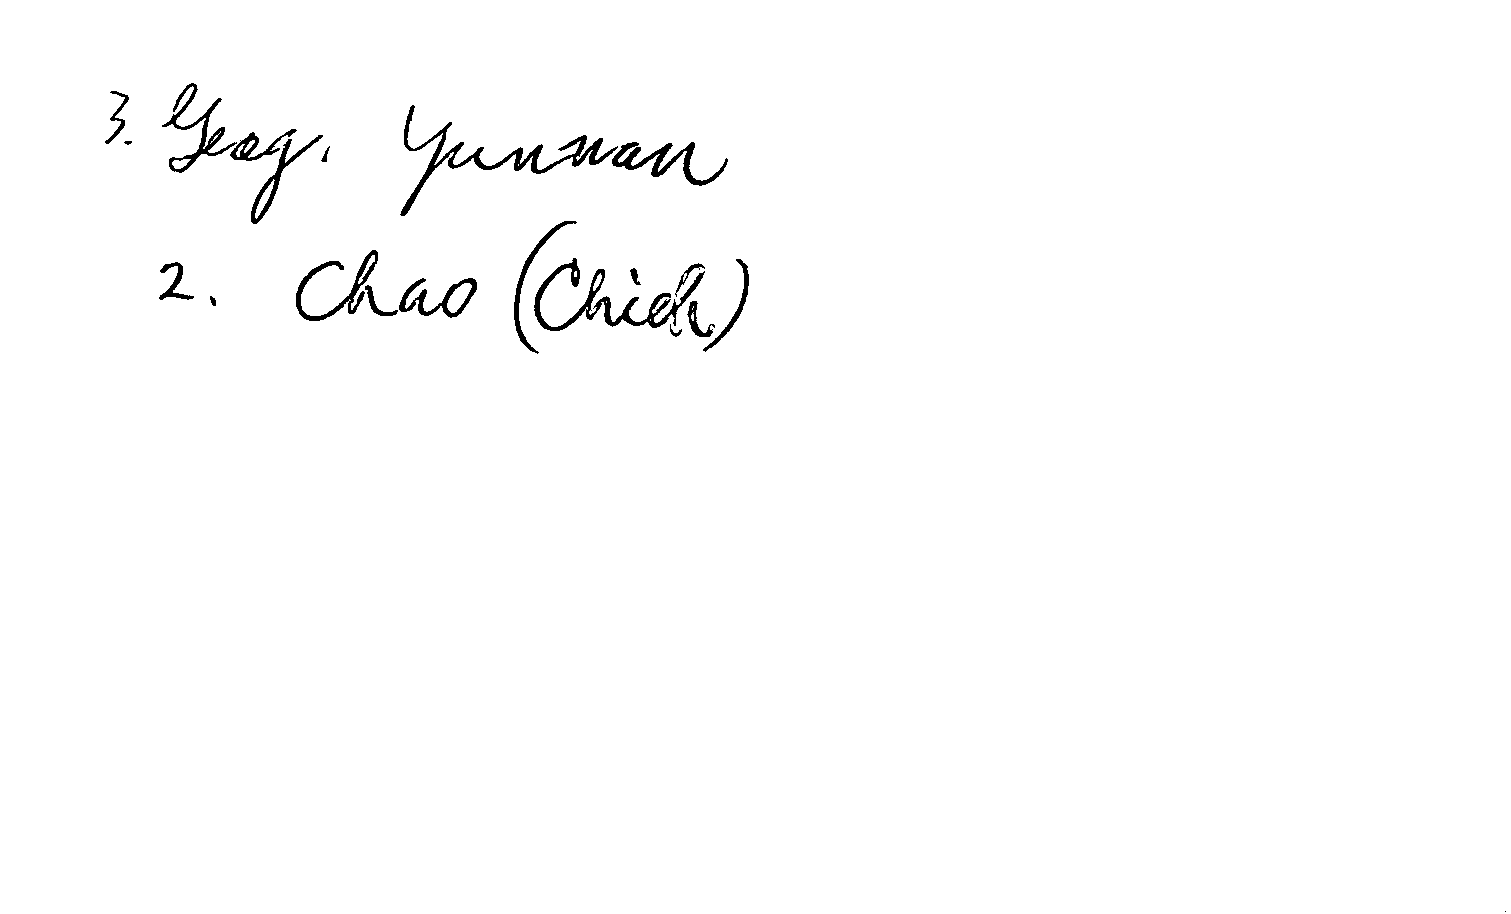 3. Geog. Yunnan
2. Chao (Chich)